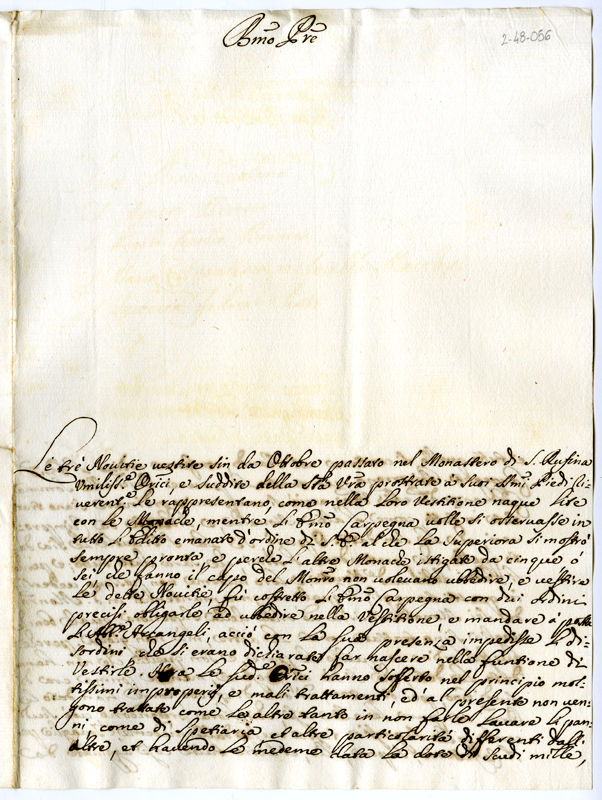 B.mo P.re
2-48-056
Le trè Novitie vestite sin da Ottobre passato nel Monastero di S. Rufina
Umiliss.e Or.ici, e suddite della S.tà V.ra prostrate à suoi S.mi Piedi Ri-
verent.e Le rappresentano, come nella Loro Vestitione naque Lite
con le Monache, mentre l'E.mo Carpegna volle si osservasse in
tutto l'Editto emanato d'ordine di S. B. al che La Superiora si mostrò
sempre pronta, e perche l'altre Monache istigate da cinque ò
sei che fanno il capo del Mon.ro non volevano ubedire, e vestire
Le dette Novitie, fù costretto l'E.mo Carpegna con dui ordini
precisi obligarle ad ubedire nella Vestitione, e mandare à posta
l'Abb.e Arcangeli, acciò con La sua presenza impedisse li di-
sordini che si erano dichiarate far nascere nella funtione di
Vestirle. Hora Le sud.e Or.ici hanno sofferto nel principio mol-
tissimi improperij, e mali trattamenti, ed' al presente non ven-
gono trattate come Le altre tanto in non farle Lavare li pan-
ni come di Spetiaria et altre particolarità differenti dall'
altre, et havendo Le medeme data La dote di Scudi mille,